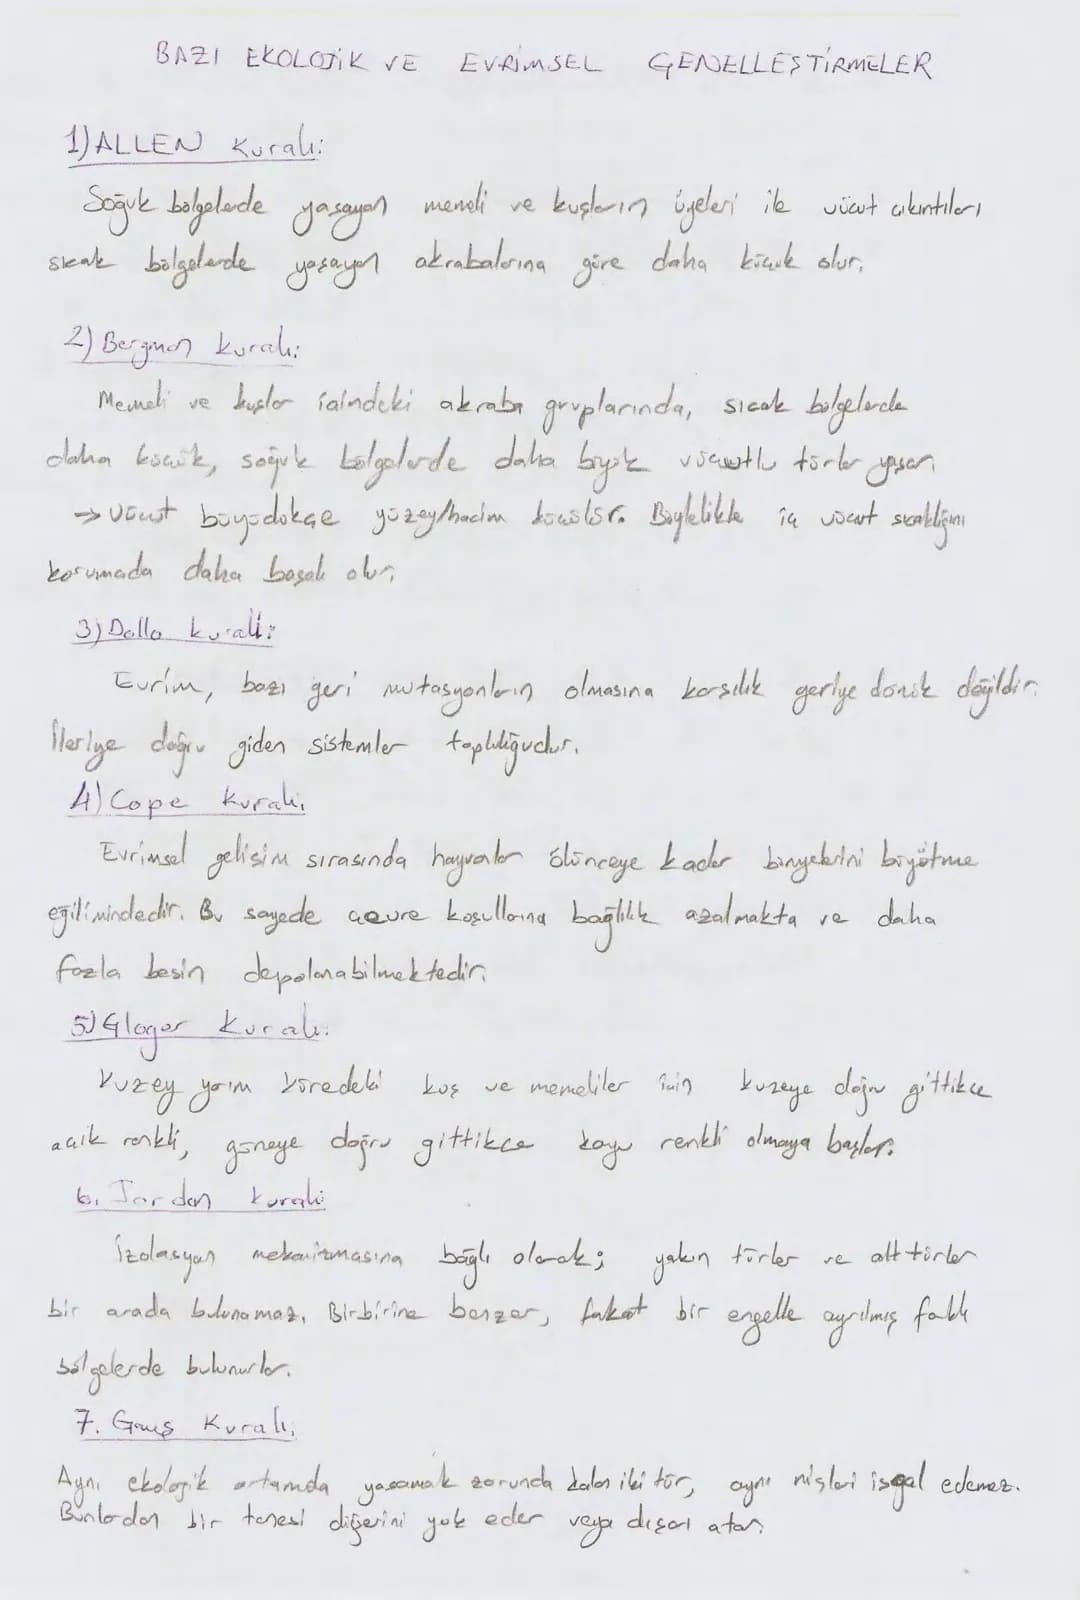 BAZI EKOLOJİK VE EVRİMSEL GENELLEŞTİRMELER
1) ALLEN Kuralı:
Soğuk bölgelerde yaşayan memeli ve kuşların üyeleri ile vücut çıkıntıları
sıcak bölgelerde yaşayan akrabalarına göre daha küçük olur.
2) Bergman Kuralı:
Memeli ve kuşlar içindeki akraba gruplarında, sıcak bölgelerde
daha küçük, soğuk bölgelerde daha büyük vücutlu türler yaşar.
→ Vücut büyüdükçe yüzey/hacim küçülür. Böylelikle iç vücut sıcaklığını
korumada daha başarılı olur.
3) Dollo kuralı:
Evrim, bazı geri mutasyonların olmasına karşılık geriye dönük değildir.
İleriye doğru giden sistemler topluluğudur.
4) Cope Kuralı.
Evrimsel gelişim sırasında hayvanlar ölünceye kadar bünyelerini büyütme
eğilimindedir. Bu sayede çevre koşullarına bağlılık azalmakta ve daha
fazla besin depolanabilmektedir.
5) Gloger Kuralı:
Kuzey yarım küredeki kuş ve memeliler için kuzeye doğru gittikçe
açık renkli, güneye doğru gittikçe koyu renkli olmaya başlar.
6. Jordan kuralı:
İzolasyon mekanizmasına bağlı olarak; yakın türler ve alt türler
bir arada bulunamaz. Birbirine benzer, fakat bir engelle ayrılmış farklı
bölgelerde bulunurlar.
7. Gauş Kuralı.
Aynı ekolojik ortamda yaşamak zorunda kalan iki tür, aynı nişleri işgal edemez.
Bunlardan bir tanesi diğerini yok eder veya dışarı atar.